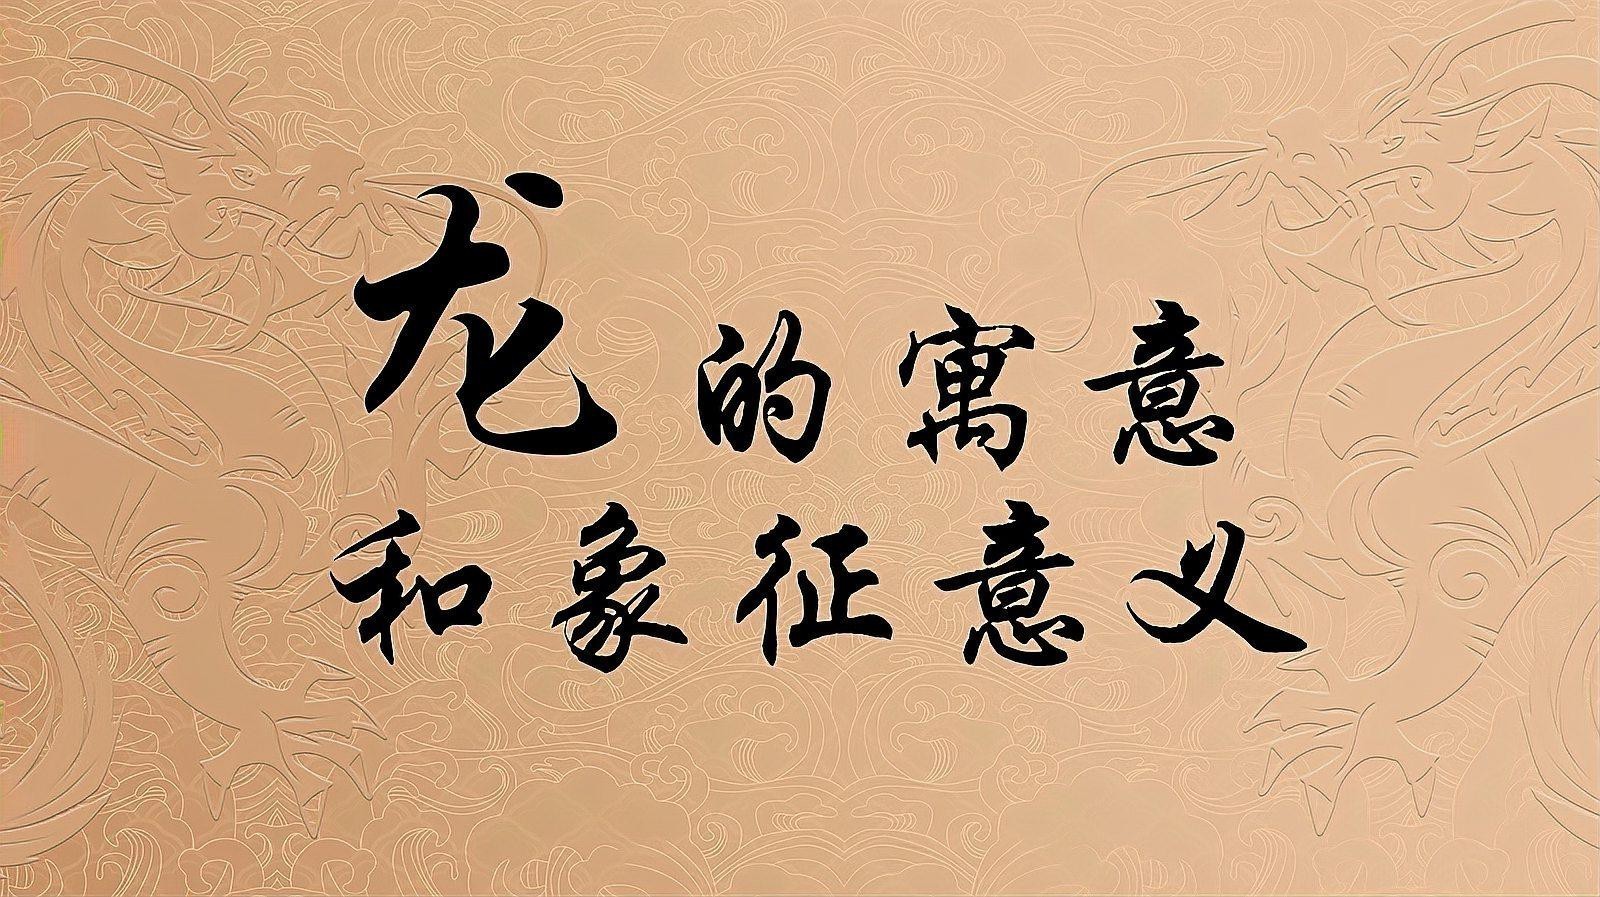 龙的寓意
和象征意义